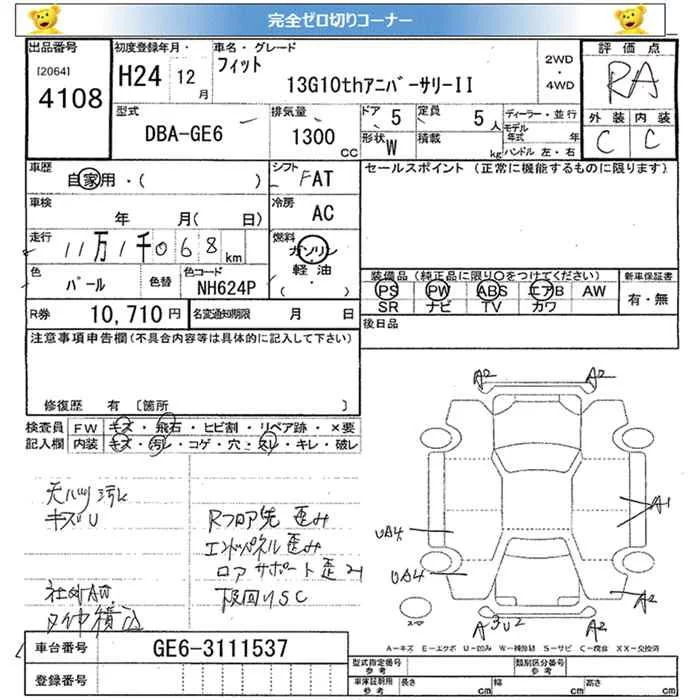 完全ゼロ切りコーナー
出品番号
[2064]
4108
初度登録年月・
H24 12月
車名・グレード
フィット
13G10thアニバーサリーII
2WD
・
4WD
評価点
RA
外装 内装
C C
型式
DBA-GE6
排気量
1300
CC
ドア 5
定員 5人
形状 W
積載 kg
ディーラー・並行
モデル年式 年
ハンドル 左・右
車歴
自家用・( )
シフト
FAT
車検
年 月( 日)
冷房
AC
走行
11万1千068km
燃料
ガソリン
軽油
( ・ )
色
パール
色替
色コード
NH624P
セールスポイント (正常に機能するものに限ります)
装備品(純正品に限り○をつけてください)
PS PW ABS エアB AW
SR ナビ TV カワ
新車保証書
有・無
R券 10,710円
名変通知期限 月 日
後日品
注意事項申告欄(不具合内容等は具体的に記入して下さい)
修復歴 有 〔箇所 〕
検査員 FW キズ・飛石・ヒビ割・リペア跡・×要
記入欄 内装 キズ・汚レ・コゲ・穴・スレ・キレ・破レ
天ハリ汚レ
キズU
Rフロア先歪み
エンドパネル歪み
ロアサポート歪み
下回りSC
タイヤ積込
A2 A2
A1
UA4
UA4
A2
A3U2
A-キズ E-エクボ U-凹み W-補修跡 S-サビ C-腐食 XX-交換済
車台番号
GE6-3111537
登録番号
型式指定番号
参考
類別区分番号
参考
車庫証明用
参考
長さ cm
幅 cm
高さ cm